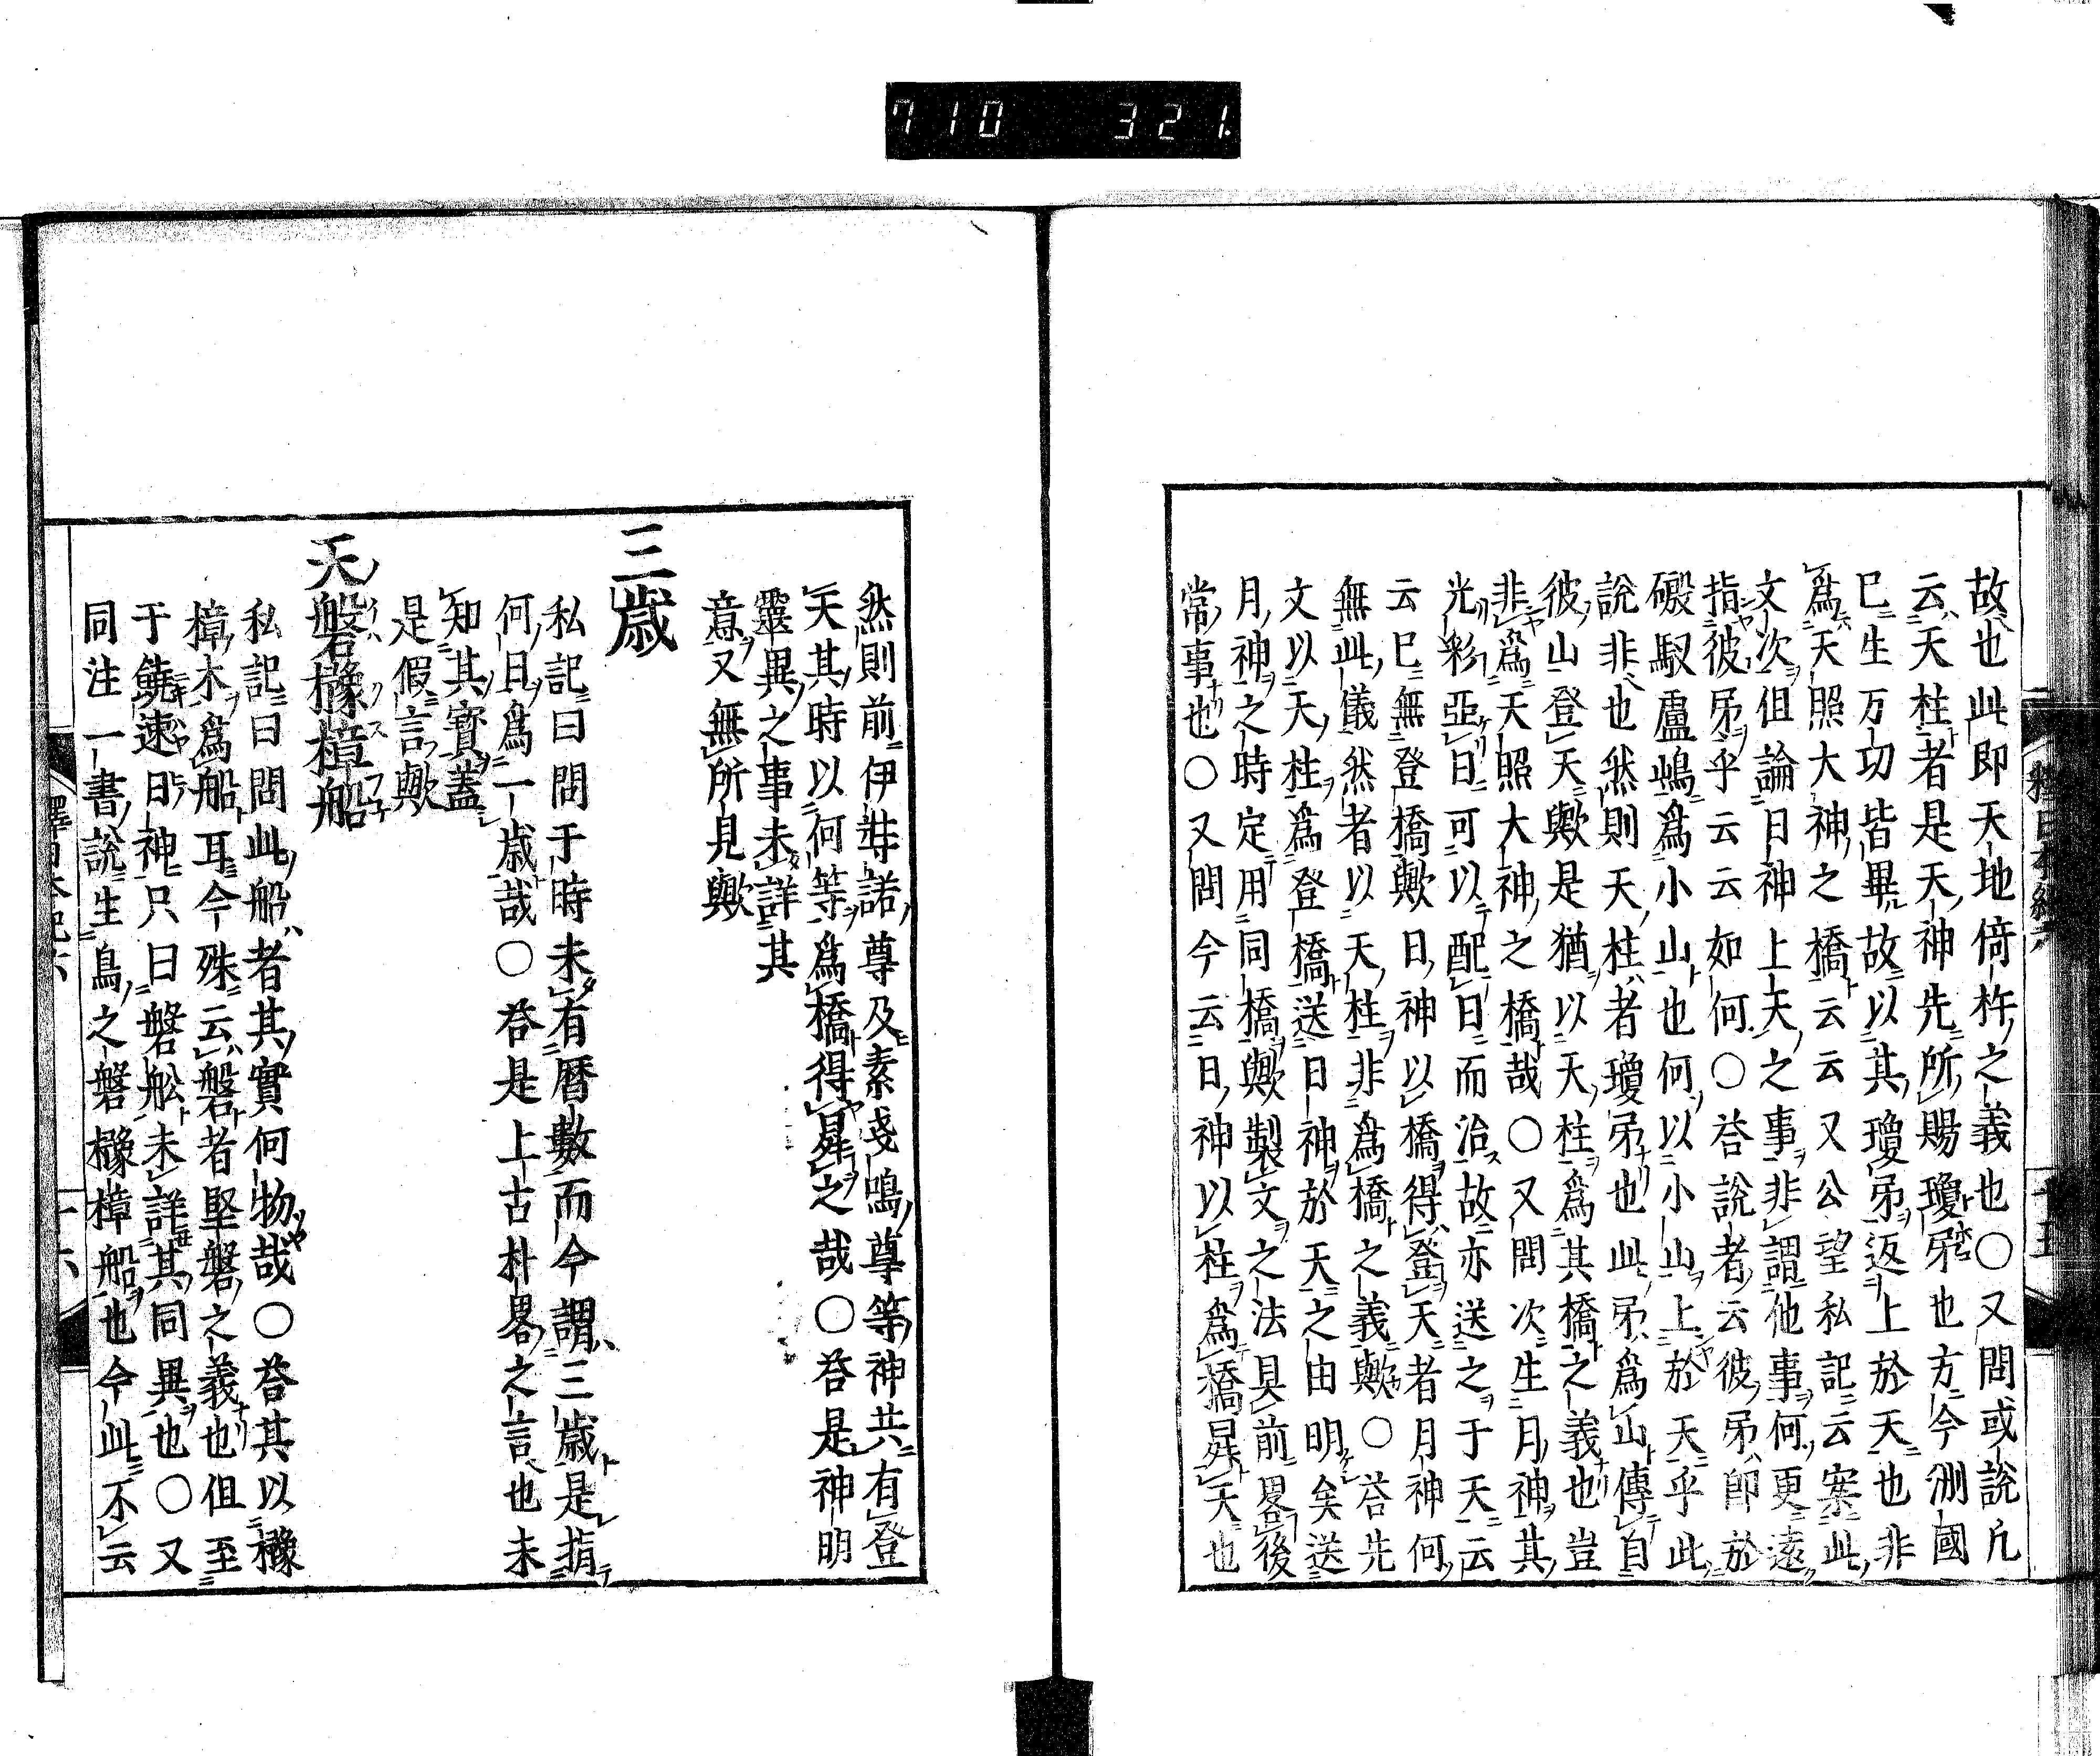 710 321.
故也此即天地倚杵之義也〇又問或說凡
云天柱者是天神先所賜瓊矛也方今洲國
巳生万功皆畢故以其瓊矛返上於天也非
爲天照大神之橋云云又公望私記云案此
文次但論日神上天之事非謂他事何更遠
指彼矛乎云云如何〇荅說者云彼矛即於
磤馭盧嶋爲小山也何以小山上於天乎此
說非也然則天柱者瓊矛也此矛爲山傳自
彼山登天歟是猶以天柱爲其橋之義也豈
非爲天照大神之橋哉〇又問次生月神其
光彩亞日可以配日而治故亦送之于天云
云巳無登橋歟日神以橋得登天者月神何
無此儀然者以天柱非爲橋之義歟〇荅先
文以天柱爲登橋送日神於天之由明矣送
月神之時定用同橋歟製文之法具前畧後
常事也〇又問今云日神以柱爲橋昇天也
然則前伊弉諾尊及素戔嗚尊等神共有登
天其時以何等爲橋得昇之哉〇荅是神明
靈異之事未詳其
意又無所見歟
三歲
私記曰問于時未有曆數而今謂三歲是指
何日爲一歲哉〇荅是上古朴畧之言也未
知其實蓋
是假言歟
天磐櫲樟船
私記曰問此船者其實何物哉〇荅其以櫲
樟木爲船耳今殊云磐者堅磐之義也但至
于饒速日神只曰磐舩未詳其同異也〇又
同注一書說生鳥之磐櫲樟船也今此不云